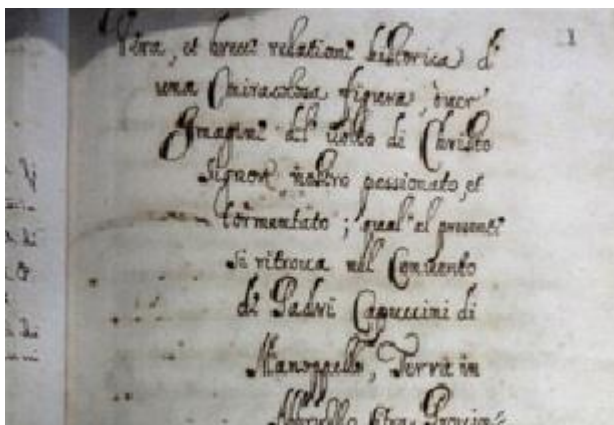 1
Vera, et breve relatione historica di
una miracolosa figura, over'
Imagine del volto di Christo
Signor nostro passionato, et
tormentato; qual' al presente
si ritrova nel Convento
di Padri Capuccini di
Manoppello, Terra in
Abbruzzo